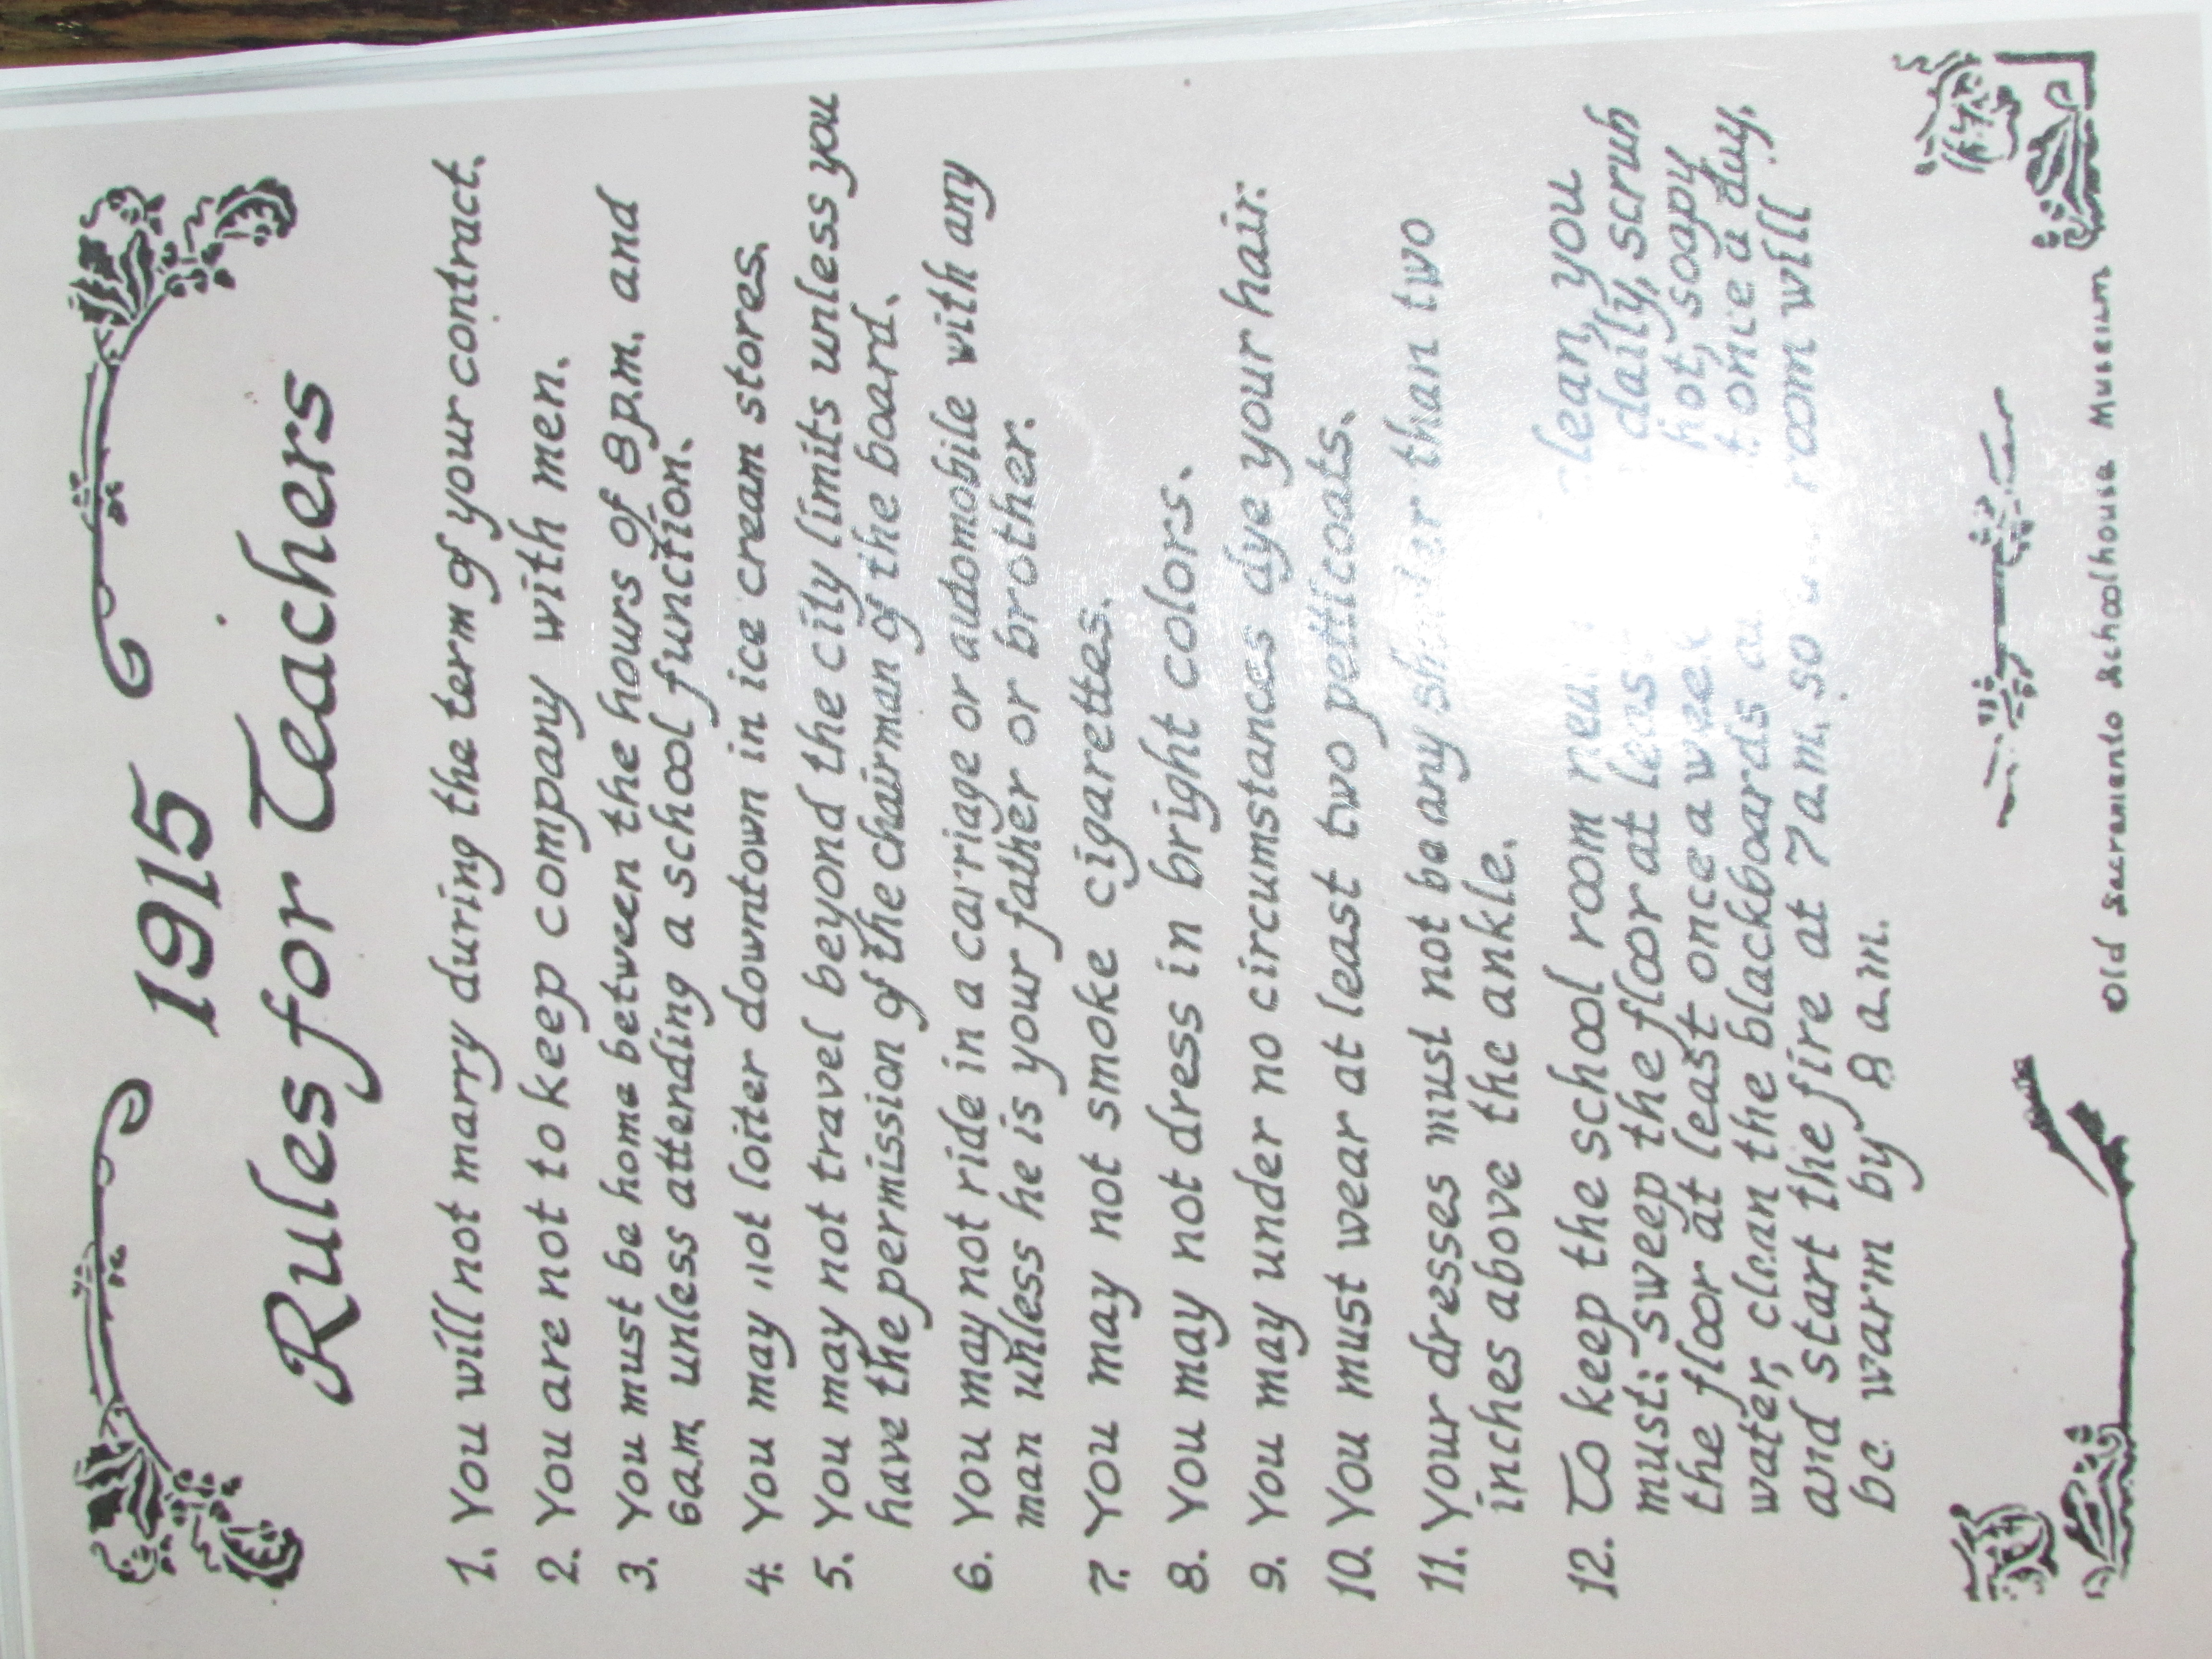 1915
Rules for Teachers
1. You will not marry during the term of your contract.
2. You are not to keep company with men.
3. You must be home between the hours of 8 p.m. and
6 a.m. unless attending a school function.
4. You may not loiter downtown in ice cream stores.
5. You may not travel beyond the city limits unless you
have the permission of the chairman of the board.
6. You may not ride in a carriage or automobile with any
man unless he is your father or brother.
7. You may not smoke cigarettes.
8. You may not dress in bright colors.
9. You may under no circumstances dye your hair.
10. You must wear at least two petticoats.
11. Your dresses must not be any shorter than two
inches above the ankle.
12. To keep the school room you
must: sweep the floor at daily, scrub
the floor at least once a week hot, soapy
water, clean the blackboards once a day,
and start the fire at 7 a.m. so room will
be warm by 8 a.m.
Old Sacramento Schoolhouse Museum